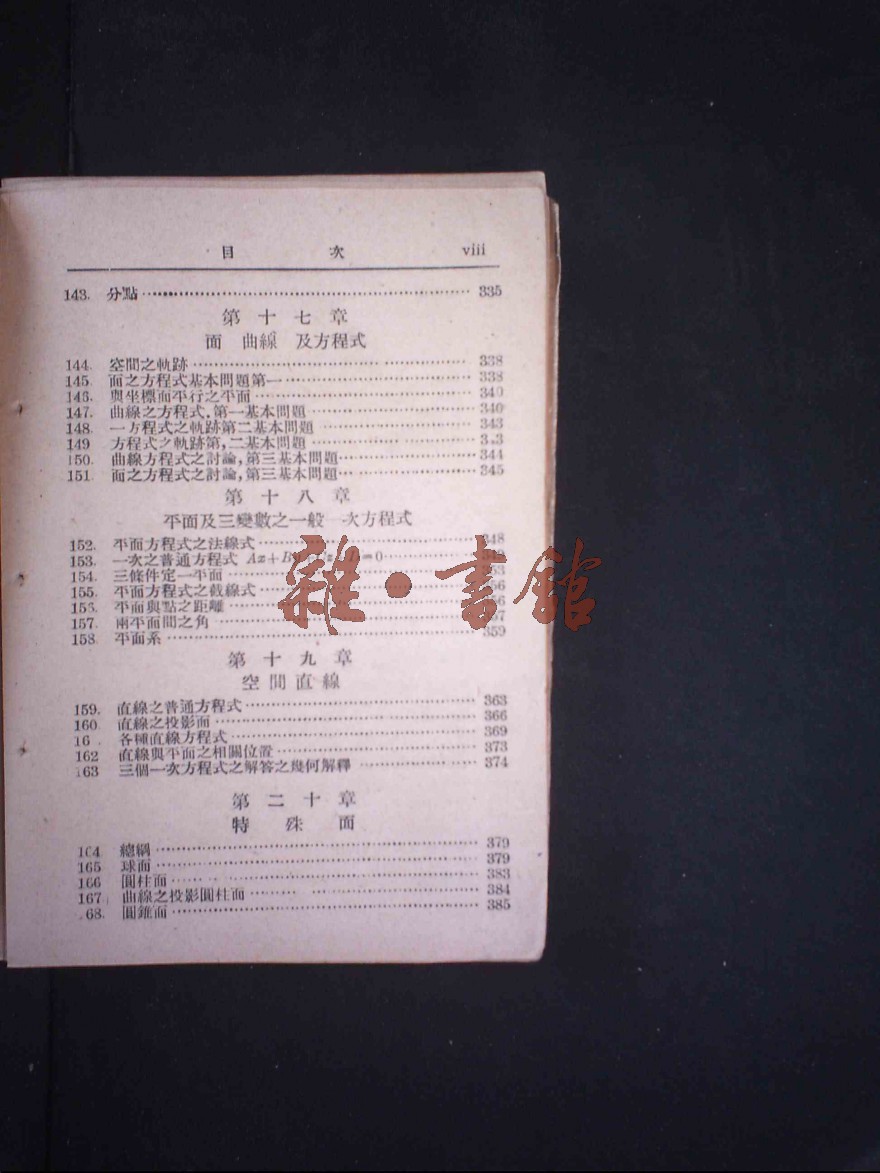 目 次 viii
143. 分點 335
第十七章
面 曲線 及方程式
144. 空間之軌跡 338
145. 面之方程式基本問題第一 338
146. 與坐標面平行之平面 340
147. 曲線之方程式,第一基本問題 340
148. 一方程式之軌跡第二基本問題 343
149 方程式之軌跡第,二基本問題
150. 曲線方程式之討論,第三基本問題 344
151. 面之方程式之討論,第三基本問題 345
第十八章
平面及三變數之一般 次方程式
152. 平面方程式之法線式 348
153. 一次之普通方程式
154. 三條件定一平面
155. 平面方程式之截線式
156. 平面與點之距離
157. 兩平面間之角
158. 平面系 359
雜·書館
第十九章
空間直線
159. 直線之普通方程式 363
160. 直線之投影面 366
16 . 各種直線方程式 369
162 直線與平面之相關位置 373
163 三個一次方程式之解答之幾何解釋 374
第二十章
特殊面
164 總綱 379
165 球面 379
166 圓柱面 383
167 曲線之投影圓柱面 384
68. 圓錐面 385